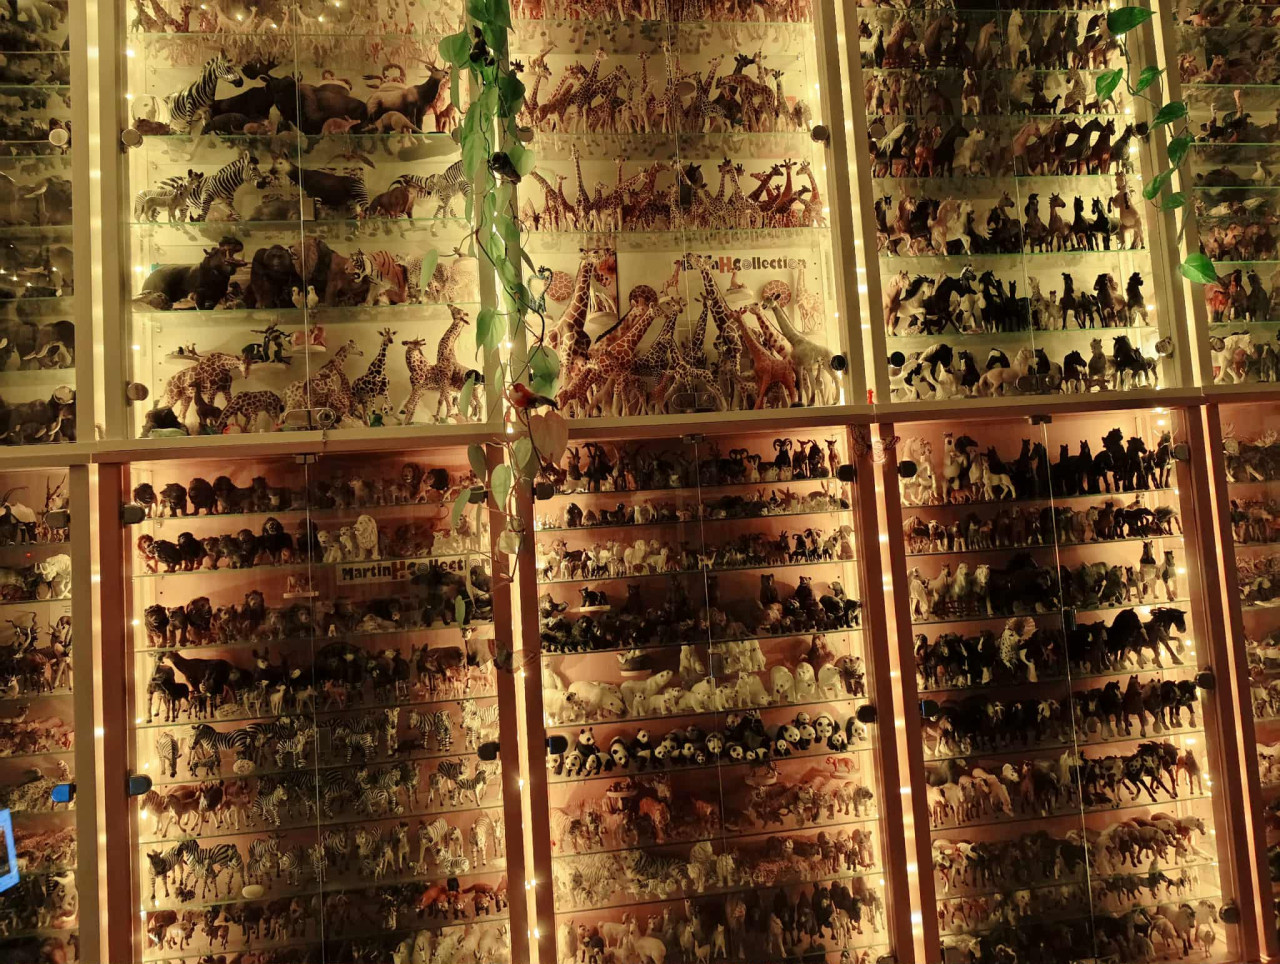 MartinHCollection
MartinHCollecti